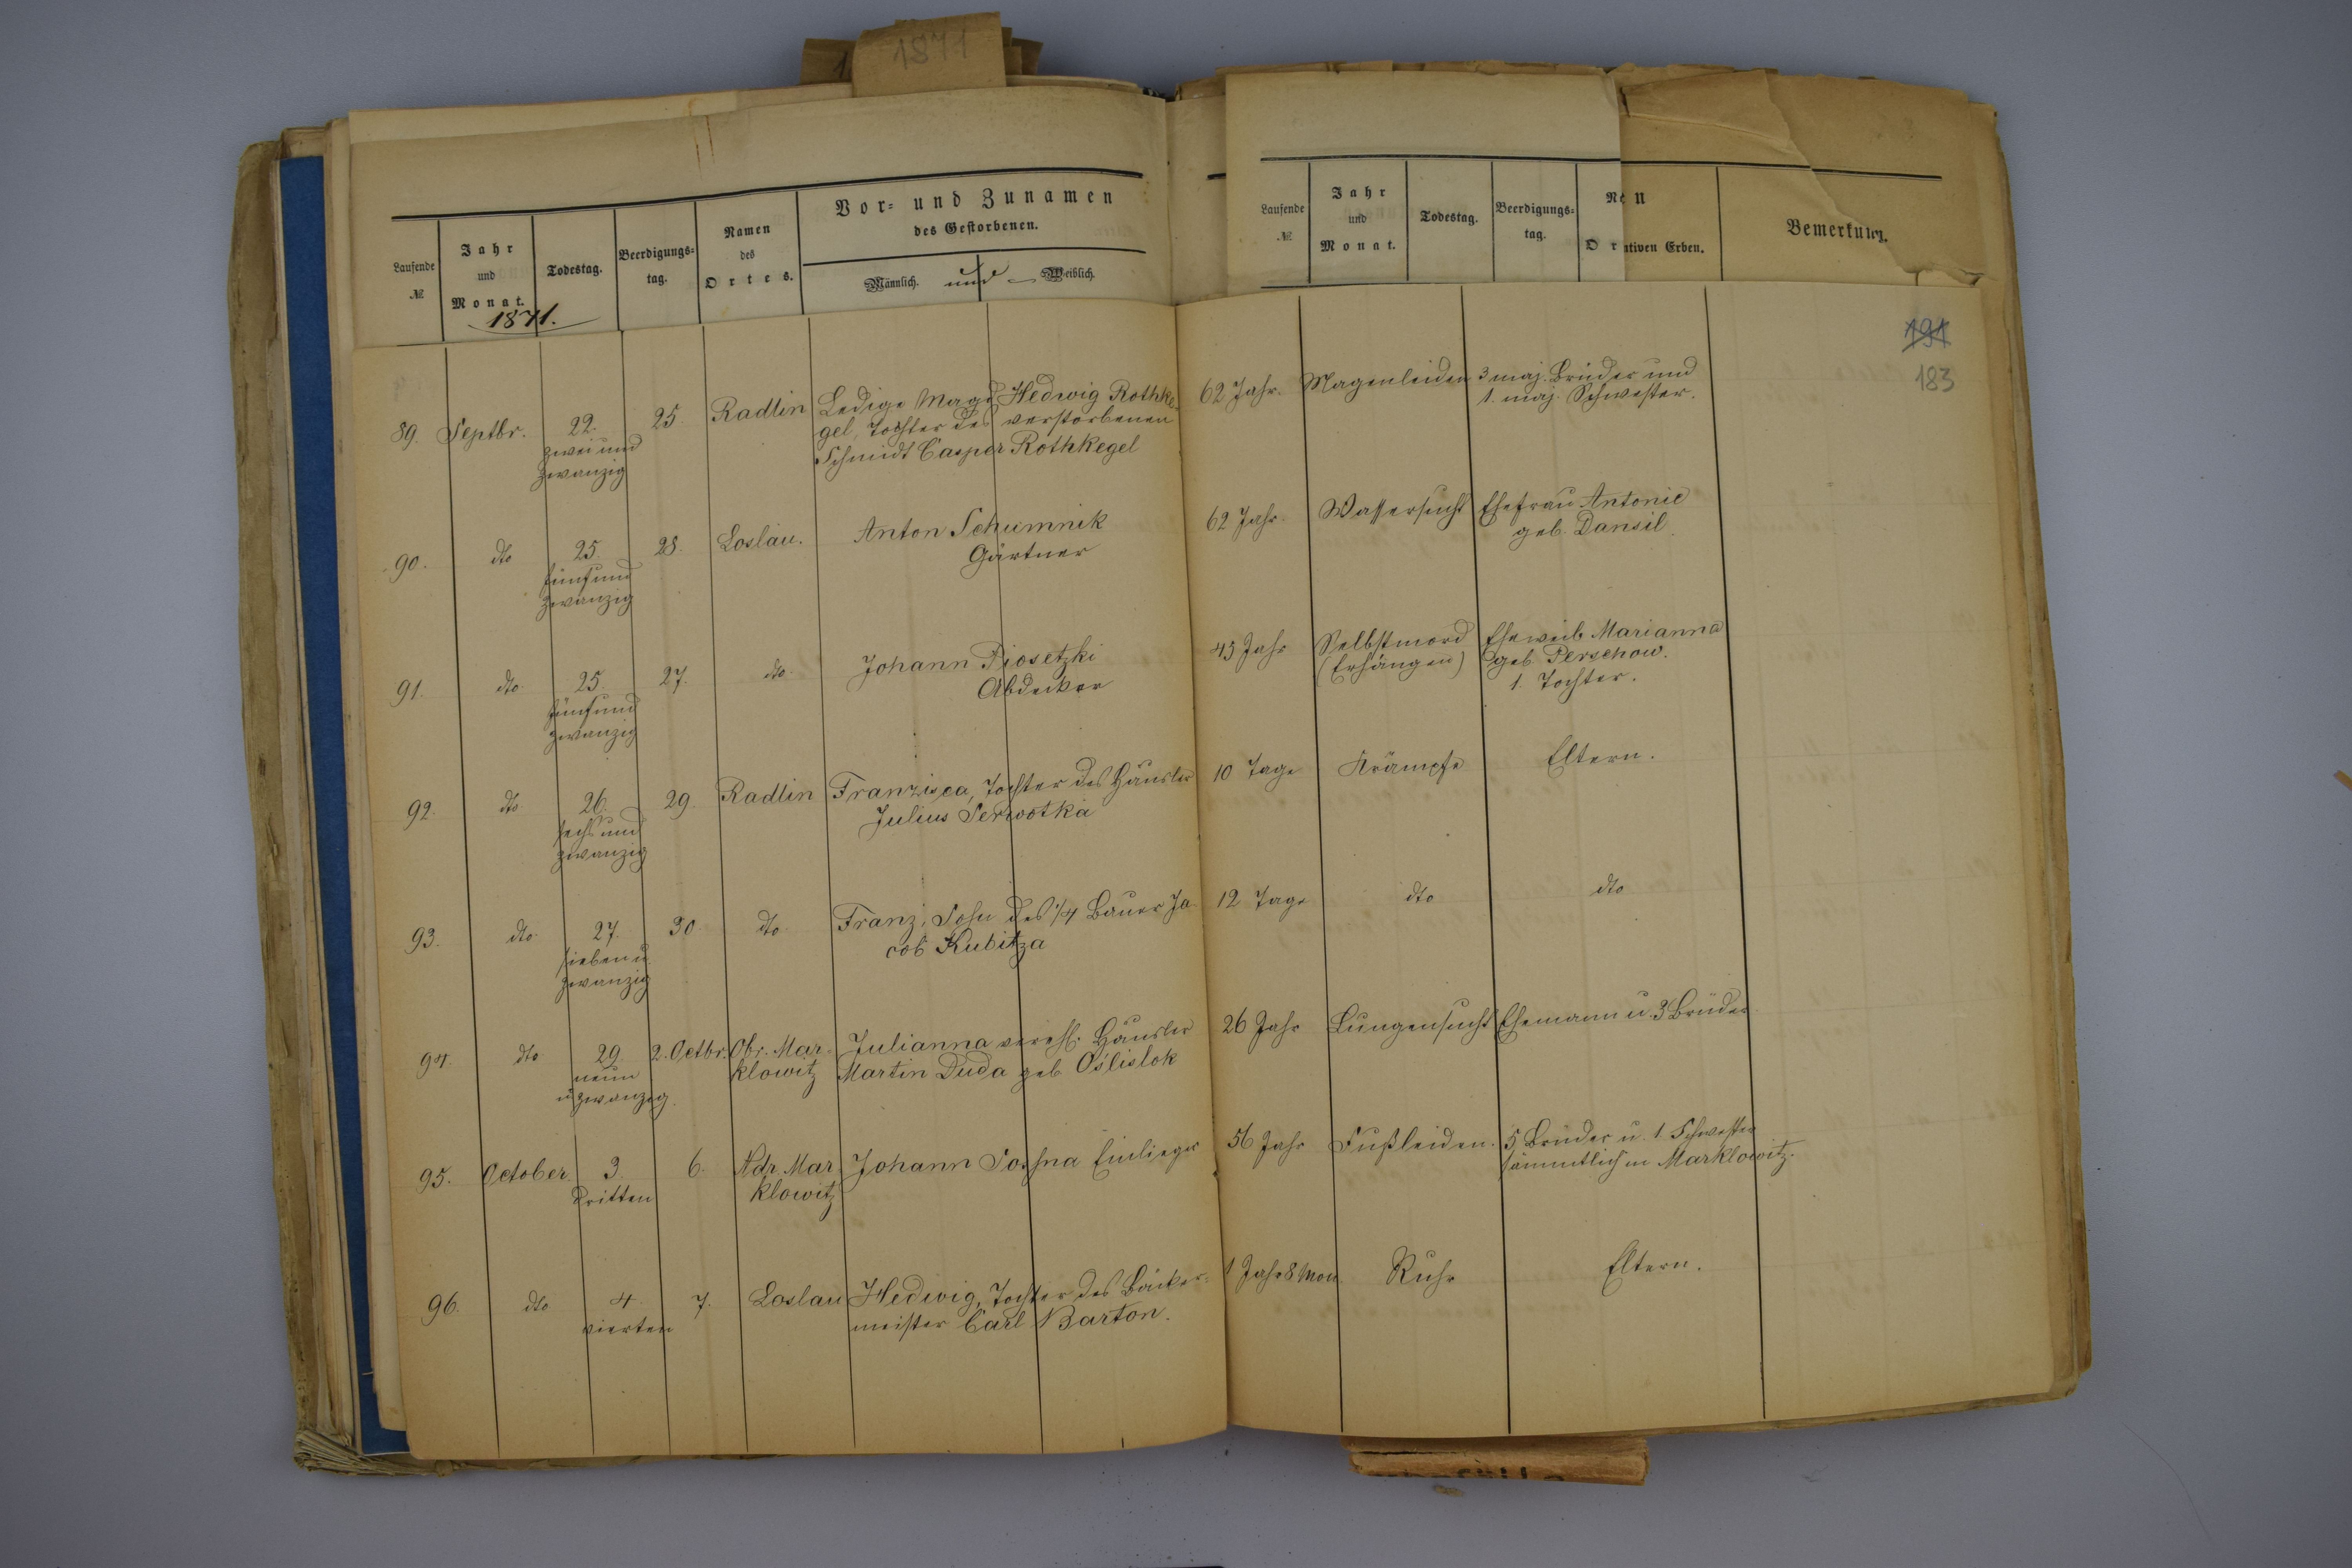 1871
Vor- und Zunamen
des Gestorbenen.
Laufende
№
Jahr
und
Monat.
Todestag.
Beerdigungs-
tag.
Namen
des
Ortes.
Männlich. und Weiblich.
1871.
Laufende
№
Jahr
und
Monat.
Todestag.
Beerdigungs-
tag.
ativen Erben.
Bemerkung.
191
183
89. Septbr. 22. 25. Radlin Ledige Magd Hedwig Rothke- 62 Jahr. Magenleiden 3 maj. Brüder und
zwei und gel, Tochter des verstorbenen 1. maj. Schwester.
zwanzig Schmidt Casper Rothkegel
90. dto 25. 28. Loslau. Anton Schumnik 62 Jahr. Wassersucht Ehefrau Antonie
fünf und Gärtner geb. Dansil.
zwanzig
91. dto 25. 27. dto. Johann Piosetzki 45 Jahr Selbstmord Eheweib Marianna
fünf und Abdecker (Erhängen) geb. Perschow.
zwanzig 1. Tochter.
92. dto 26. 29. Radlin Franzisca, Tochter des Häusler 10 Tage Krämpfe Eltern.
sechs und Julius Serwotka
zwanzig
93. dto 27. 30. dto. Franz, Sohn des 1/4 Bauer Ja- 12 Tage dto dto
sieben u. cob Kubitza
zwanzig
94. dto 29. 2. Octbr. Obr. Mar- Julianna verehl. Häusler 26 Jahr Lungensucht Ehemann u. 3 Brüder.
neun klowitz Martin Duda geb. Oślislok
u. zwanzig.
95. October 3. 6. Ndr. Mar- Johann Sosna Einlieger 56 Jahr Fußleiden. 5 Brüder u. 1 Schwester
dritten klowitz sämmtlich in Marklowitz.
96. dto 4. 7. Loslau Hedwig, Tochter des Bäcker- 1 Jahr 8 Mon. Ruhr Eltern.
vierten meister Carl Barton.